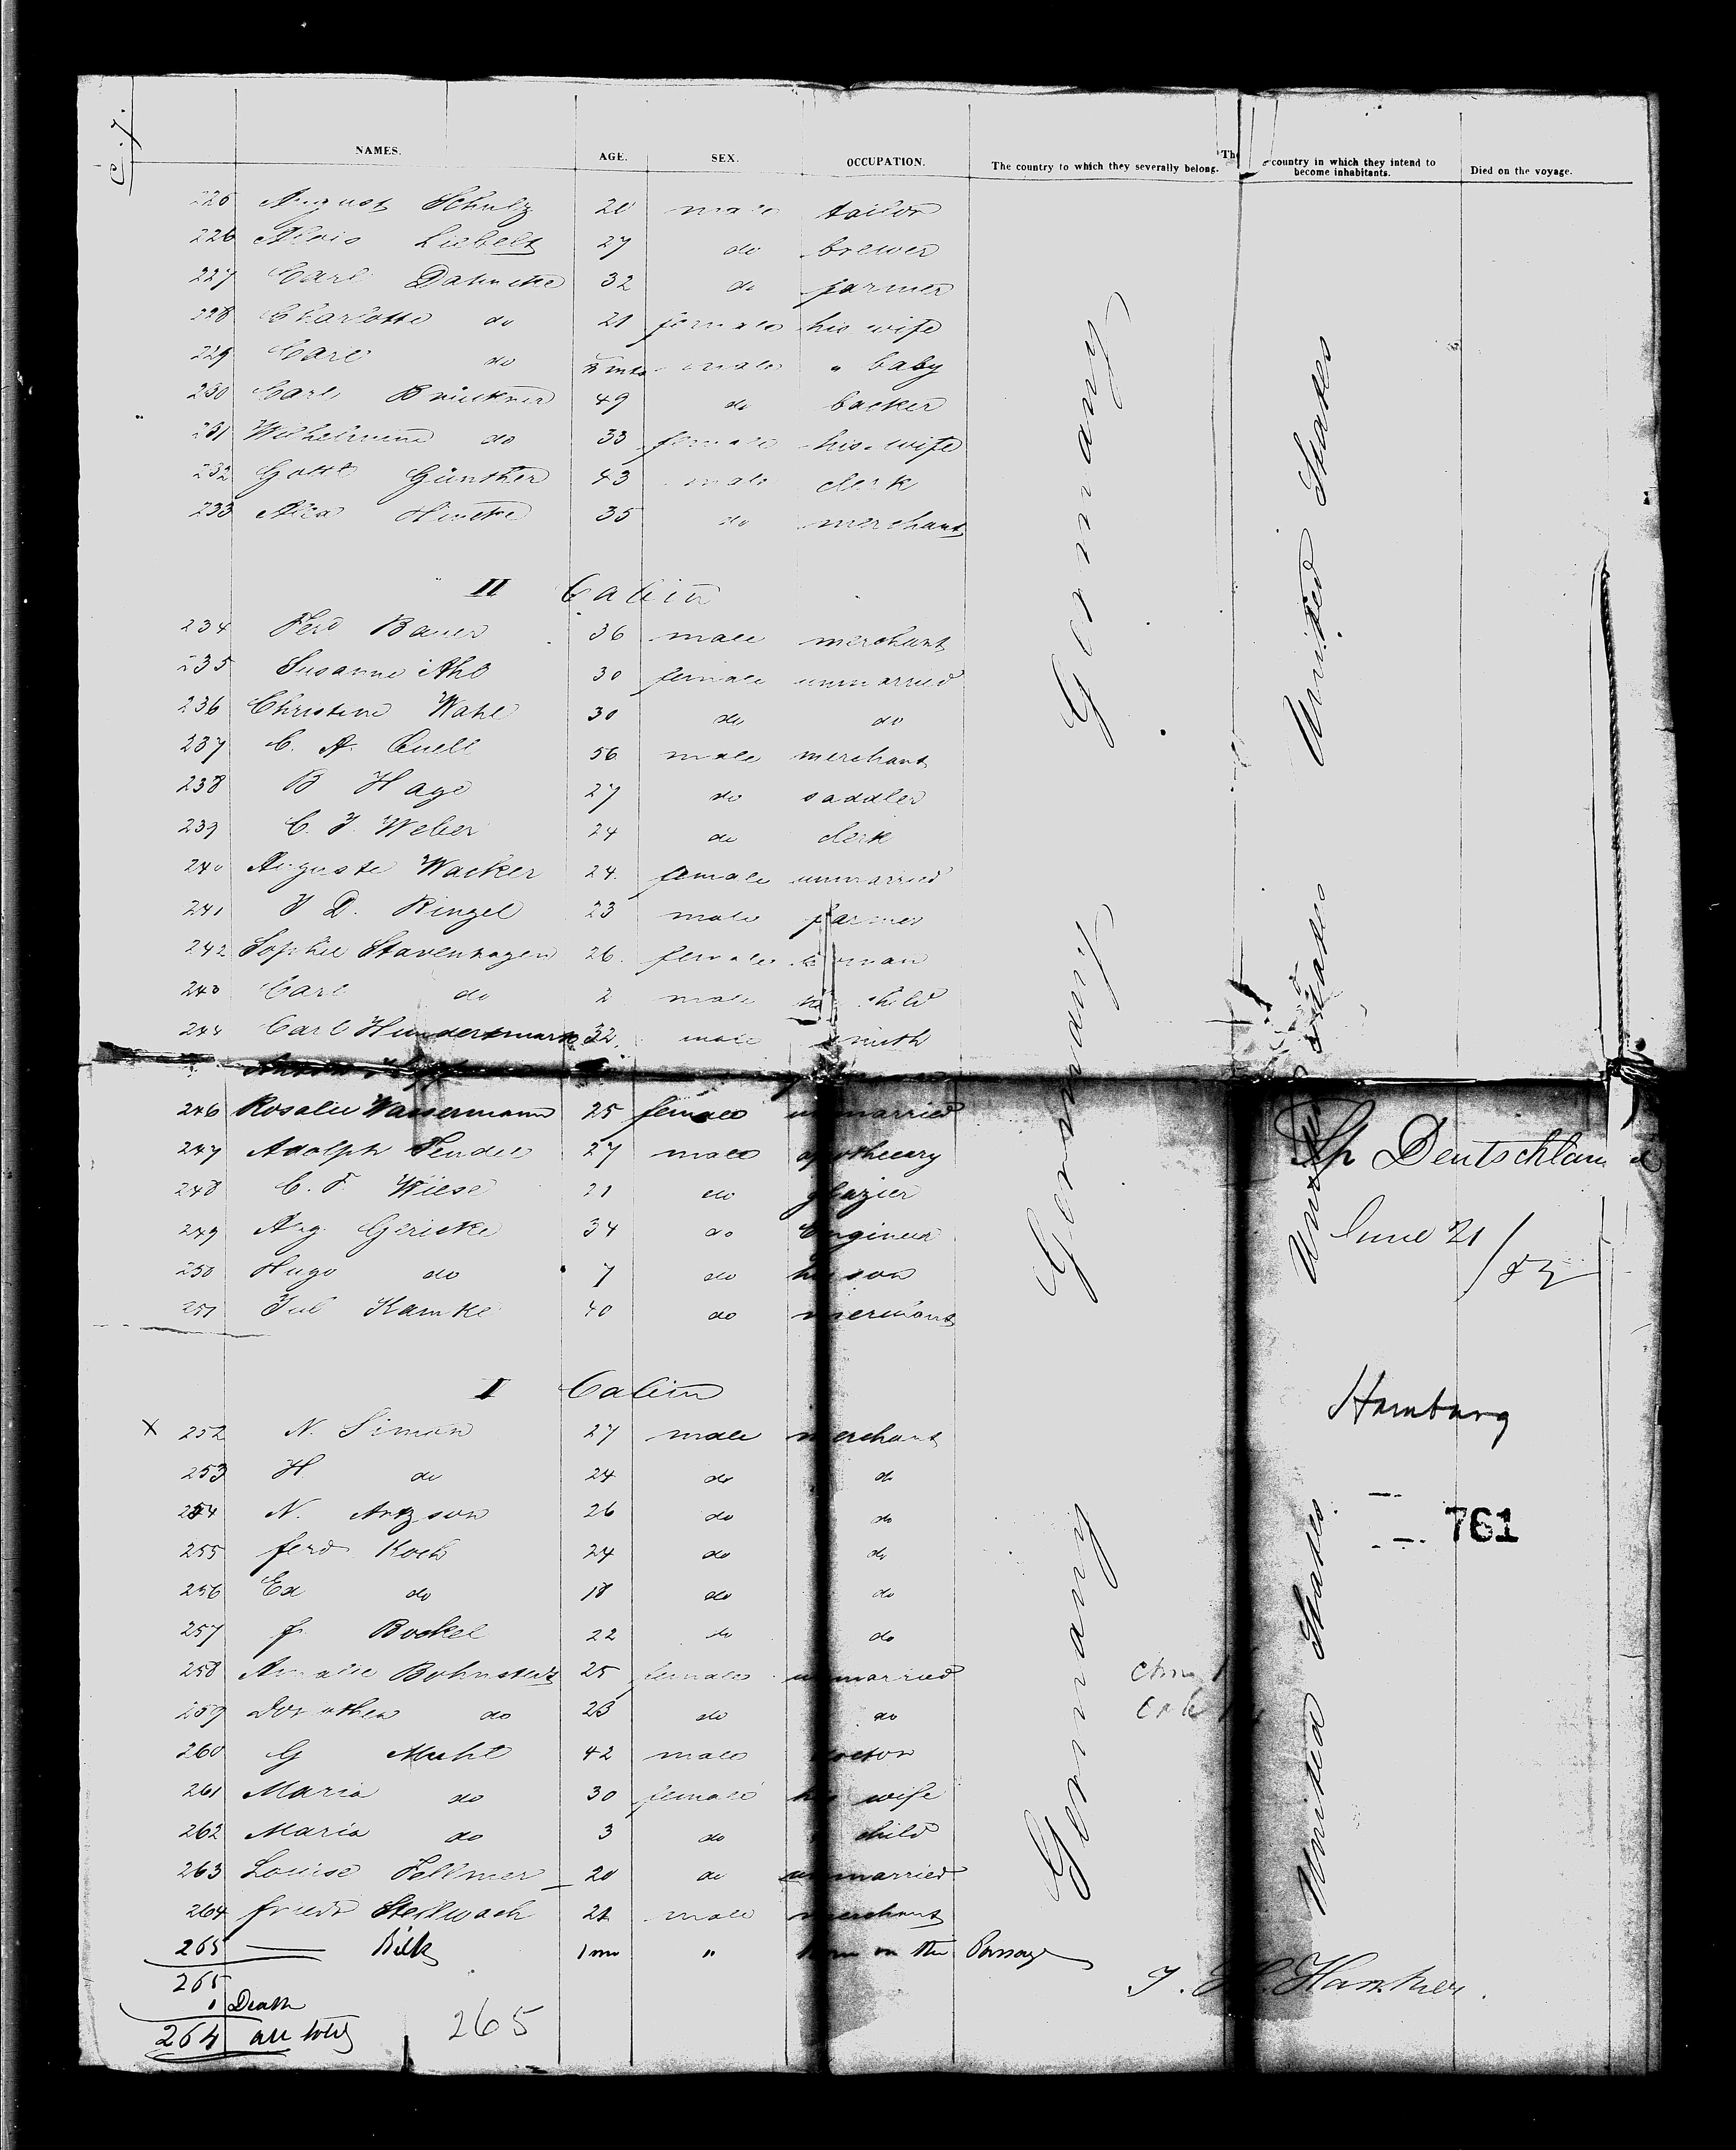 NAMES. AGE. SEX. OCCUPATION. The country to which they severally belong. The country in which they intend to become inhabitants. Died on the voyage.
225 August Schulz 20 male tailor
226 Alois Liebelt 27 do brewer
227 Carl Dahncke 32 do farmer
228 Charlotte do 21 female his wife
229 Carl do mts male " baby
230 Carl Brückner 49 do backer
231 Wilhelmine do 33 female his wife
232 Gottl Günther 43 male clerk
233 35 do merchant
II Cabin
234 Ferd Bauer 36 male merchant
235 Susanne Ahl 30 female unmarried
236 Christine Wahl 30 do do
237 C. A. Quell 56 male merchant
238 B Hage 27 do saddler
239 C. F. Weber 24 do clerk
240 Auguste Wacker 24 female unmarried
241 J D. Ringel 23 male farmer
242 Sophie Stavenhagen 26 female woman
243 Carl do 2 male child
244 Carl Hundertmark 32 male smith
246 Rosalie Wassermann 25 female unmarried
247 Adolph Tendel 27 male apothecary
248 C. F. Wiese 21 do glazier
249 Aug Gericke 34 do Engineer
250 Hugo do 7 do his son
251 Jul Kamke 40 do merchant
I Cabin
X 252 N. Simon 27 male merchant
253 H do 24 do do
254 N. Artzson 26 do do
255 ferd Koch 24 do do
256 Ed do 18 do do
257 f. Bockel 22 do do
258 Amalie Bohnstedt 25 female unmarried
259 Dorothea do 23 do do
260 G Muhl 42 male doctor
261 Maria do 30 female his wife
262 Maria do 3 do child
263 Louise Fellmer 20 do unmarried
264 friedr Stellwach 21 male merchant
265 —— Bilk 1 mo " born on the Passage
265
1 Death
264 all told
265
Germany
Germany
Germany
United States
United States
United States
Sp Deutschland
June 21/53
Hamburg
761